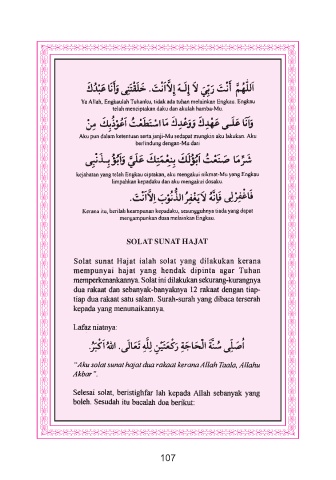 اَللَّهُمَّ أَنْتَ رَبِّيْ لاَ إِلَـهَ إِلاَّ أَنْتَ. خَلَقْتَنِى وَأَنَا عَبْدُكَ
Ya Allah, Engkaulah Tuhanku, tidak ada tuhan melainkan Engkau. Engkau
telah menciptakan daku dan akulah hamba-Mu.
وَأَنَا عَلَـى عَهْدِكَ وَوَعْدِكَ مَااسْتَطَعْتُ أَعُوْذُبِكَ مِنْ
Aku pun dalam ketentuan serta janji-Mu sedapat mungkin aku lakukan. Aku
berlindung dengan-Mu dari
شَرِّمَا صَنَعْتُ أَبُوْلَكَ بِنِعْمَتِكَ عَلَيَّ وَأَبُوْؤُبِـذَنْبِى
kejahatan yang telah Engkau ciptakan, aku mengakui nikmat-Mu yang Engkau
limpahkan kepadaku dan aku mengakui dosaku.
فَاغْفِرْلِى فَإِنَّهُ لاَيَغْفِرُ الذُّنُوْبَ إِلاَّ أَنْتَ.
Kerana itu, berilah keampunan kepadaku, sesungguhnya tiada yang dapat
mengampunkan dosa melainkan Engkau.
SOLAT SUNAT HAJAT
Solat sunat Hajat ialah solat yang dilakukan kerana
mempunyai hajat yang hendak dipinta agar Tuhan
memperkenankannya. Solat ini dilakukan sekurang-kurangnya
dua rakaat dan sebanyak-banyaknya 12 rakaat dengan tiap-
tiap dua rakaat satu salam. Surah-surah yang dibaca terserah
kepada yang menunaikannya.
Lafaz niatnya:
أُصَلِّى سُنَّةَ الْحَاجَةِ رَكْعَتَيْنِ لِلَّهِ تَعَالَى. اللهُ أَكْبَرُ.
“Aku solat sunat hajat dua rakaat kerana Allah Taala, Allahu
Akbar”.
Selesai solat, beristighfar lah kepada Allah sebanyak yang
boleh. Sesudah itu bacalah doa berikut:
107